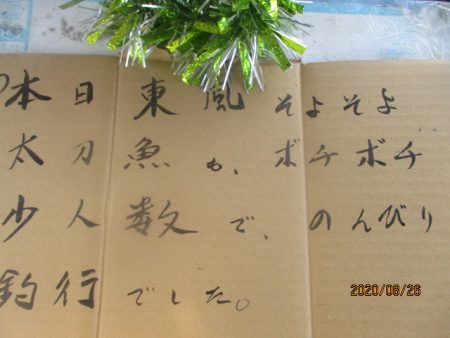 本日東風そよそよ
太刀魚も、ボチボチ
少人数で、のんびり
釣行でした。
2020/08/26